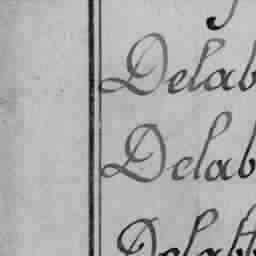 Delab
Delab
Delabb